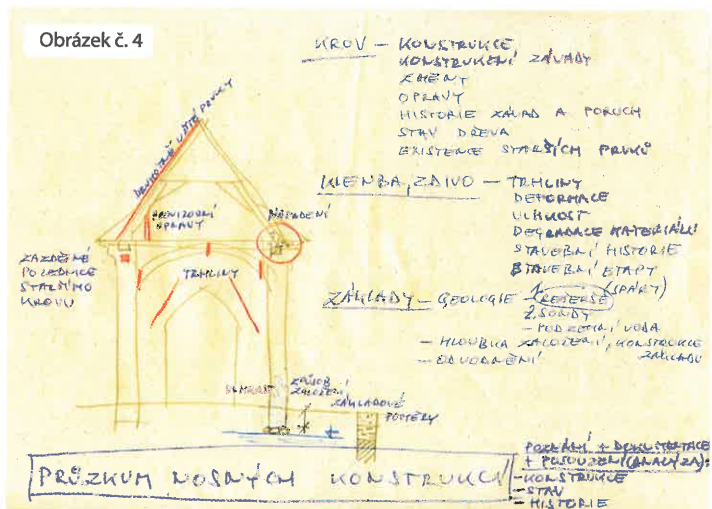 Obrázek č. 4
KROV – KONSTRUKCE,
KONSTRUKČNÍ ZÁVADY
ZMĚNY
OPRAVY
HISTORIE ZÁVAD A PORUCH
STAV DŘEVA
EXISTENCE STARŠÍCH PRVKŮ
KLENBA, ZDIVO – TRHLINY
DEFORMACE
VLHKOST
DEGRADACE MATERIÁLU
STAVEBNÍ HISTORIE
STAVEBNÍ ETAPY
(SPÁRY)
ZÁKLADY – GEOLOGIE – 1. REŠERŠE
2. SONDY
– PODZEMNÍ VODA
– HLOUBKA ZALOŽENÍ, KONSTRUKCE
ZÁKLADU
– ODVODNĚNÍ
DRUHOTNĚ UŽITÉ PRVKY
PROVIZORNÍ
OPRAVY
NAPADENÍ
ZAZDĚNÉ
POZEDNICE
STARŠÍHO
KROVU
TRHLINY
VLHKOST
ZPŮSOB
ZALOŽENÍ
ZÁKLADOVÉ
POMĚRY
PRŮZKUM NOSNÝCH KONSTRUKCÍ
POZNÁNÍ + DOKUMENTACE
+ POSOUZENÍ (ANALÝZA):
– KONSTRUKCE
– STAV
– HISTORIE